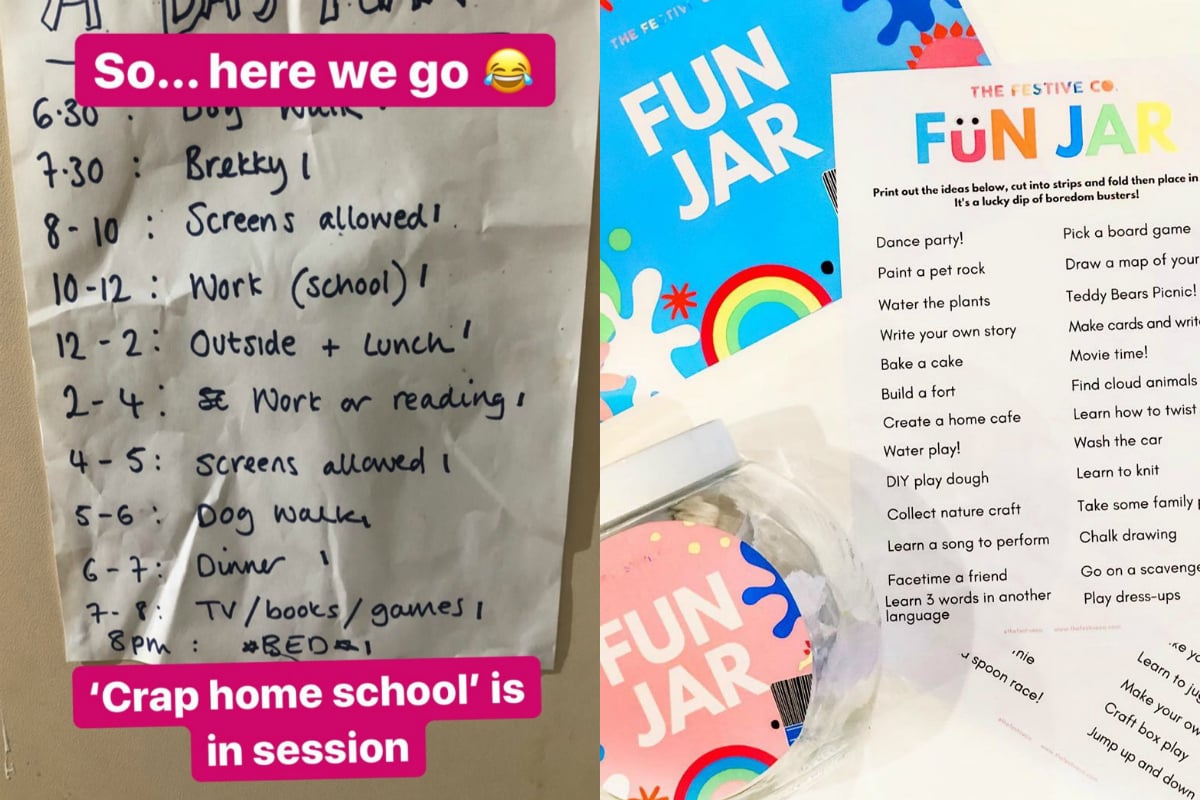 So... here we go 😂
6.30 : Dog Walk
7.30 : Brekky
8-10 : Screens allowed
10-12 : Work (school)
12-2 : Outside + Lunch
2-4 : Work or reading
4-5 : screens allowed
5-6 : Dog Walk
6-7 : Dinner
7-8 : TV/books/games
8pm : *BED*
'Crap home school' is
in session
FUN
JAR
FUN
JAR
THE FESTIVE CO.
FÜN JAR
Print out the ideas below, cut into strips and fold then place in
It's a lucky dip of boredom busters!
Dance party!
Paint a pet rock
Water the plants
Write your own story
Bake a cake
Build a fort
Create a home cafe
Water play!
DIY play dough
Collect nature craft
Learn a song to perform
Facetime a friend
Learn 3 words in another
language
Pick a board game
Draw a map of your
Teddy Bears Picnic!
Make cards and
Movie time!
Find cloud animals
Learn how to twist
Wash the car
Learn to knit
Take some family
Chalk drawing
Go on a
Play dress-ups
spoon race!
Learn to
Make your
Craft box play
Jump up and down